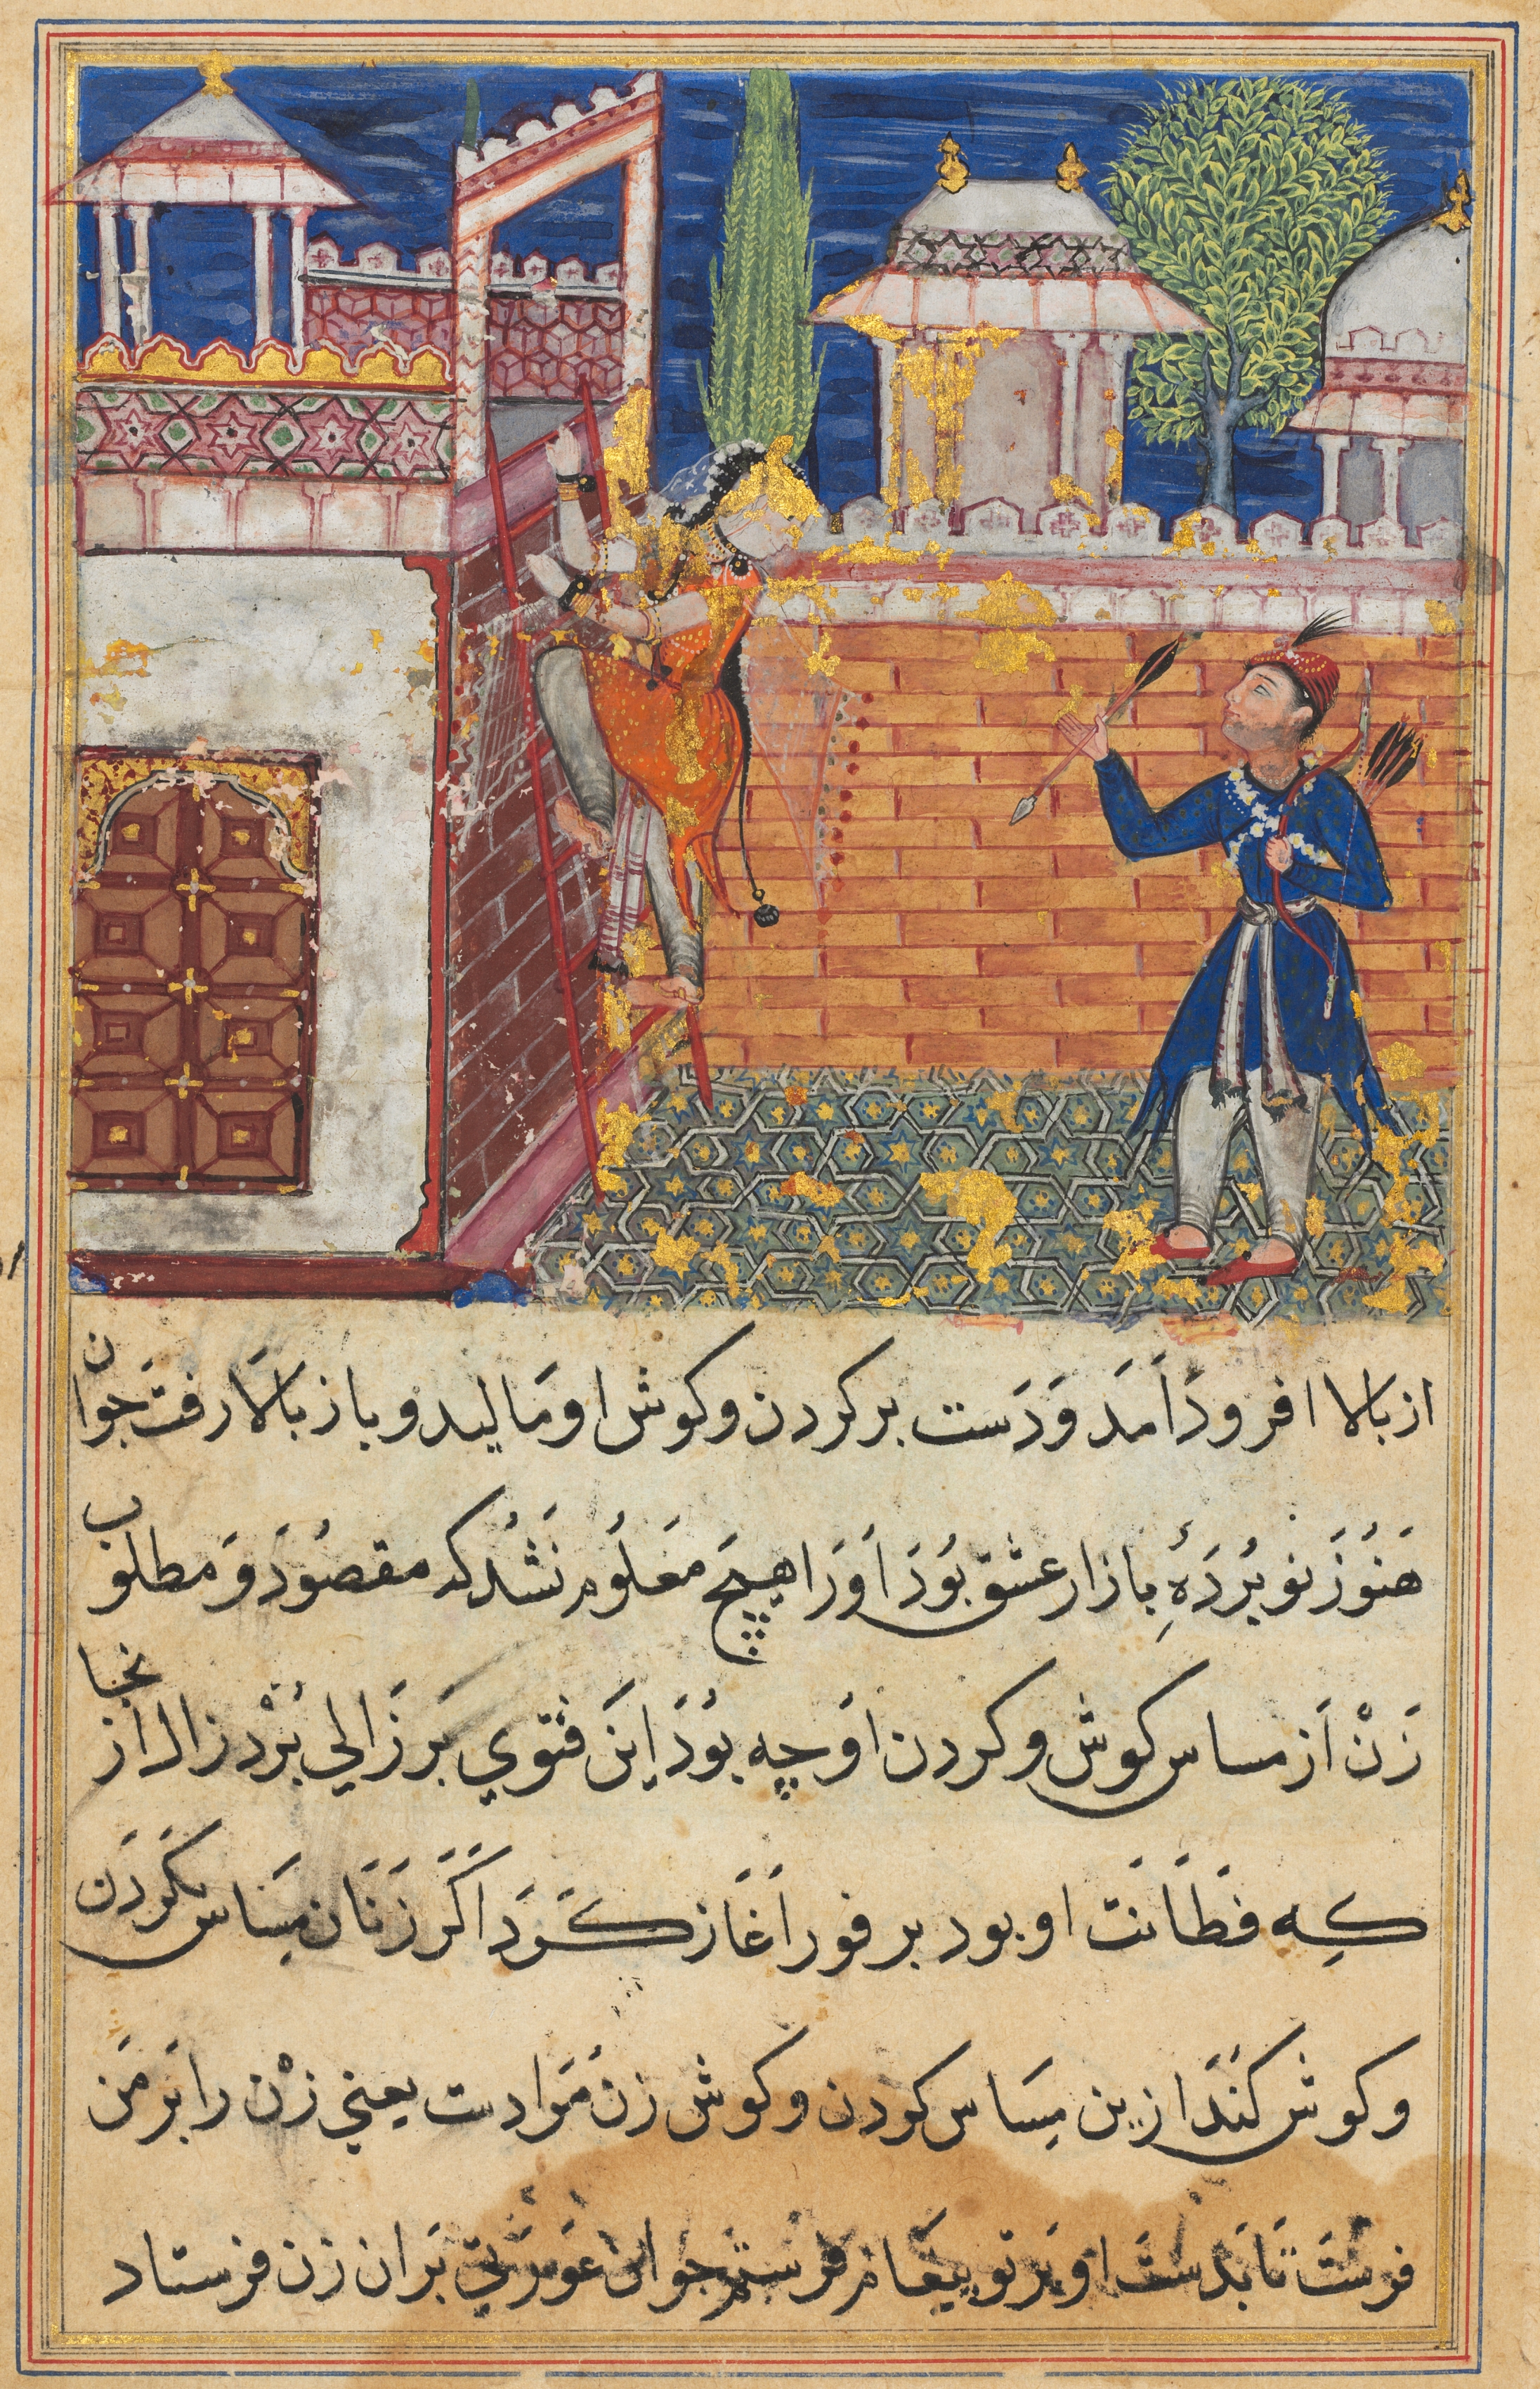 از بالا فرود آمَد وَدَست بر کردن و کوش او مَالید و باز بالا رفت جوان
هَنُوزَ نو بُردَهٔ بازار عشق بُوَد اَوَرا هیچ مَعلُوم نَشُد که مقصُود وَ مطلوب
زَنْ اَز مساس کوش و کردن اوَ چه بُوَد اینَ فتوی بَر زَالی بُرْد زال از انجا
که فَطَانَت او بود بر فور اَغَاز کَرَدَ اکَر زَنَان مِسَاس کَردَن
و کوش کنَنَد ازین مِسَاس کردن و کوش زن مَرادست یعنی زنْ را بَر مَن
فرستَ تا بَدستَ او بَر تو پیغام فرستم جوان عَوَرَتی بَران زن فرستاد